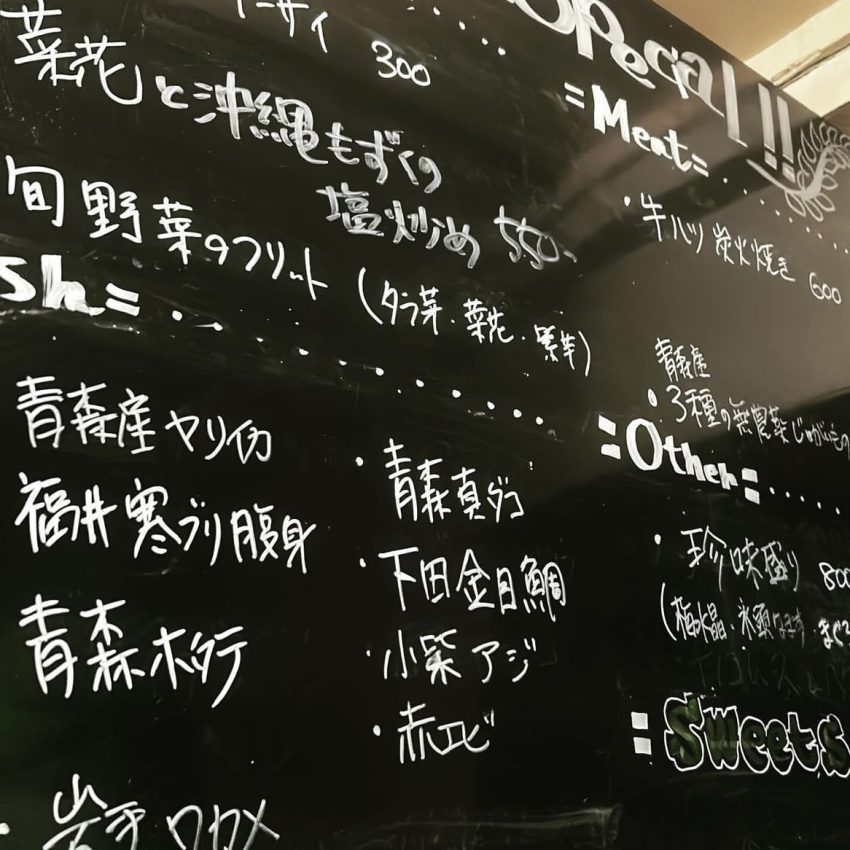 Special!!
ーサイ 300
菜花と沖縄もずくの
塩炒め 550-
旬野菜のフリット (タラ菜・菜花・紫芋)
sh=
青森産ヤリイカ
福井寒ブリ腹身
青森ホタテ
・岩手ワカメ
・青森真ダコ
・下田金目鯛
・小柴アジ
・赤エビ
=Meat=
・牛ハツ炭火焼き 600
青森産
・3種の無農薬じゃがいもの
=Other=
・珍味盛り 800
(梅水晶・氷頭なます・まぐろ
=Sweets